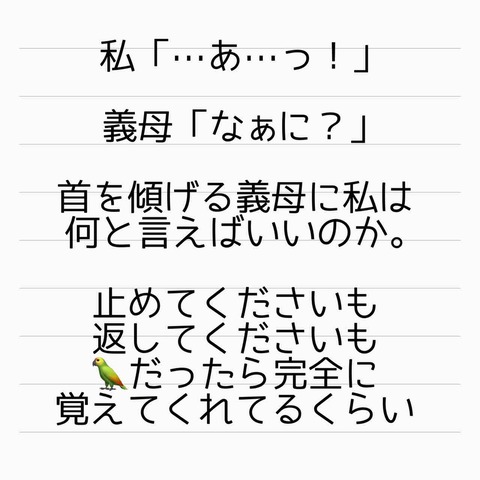 私「…あ…っ！」
義母「なぁに？」
首を傾げる義母に私は
何と言えばいいのか。
止めてくださいも
返してくださいも
🦜だったら完全に
覚えてくれてるくらい